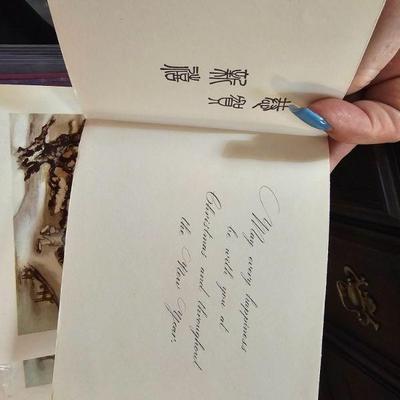 恭賀
新禧
May every happiness
be with you at
Christmas and throughout
the New Year.